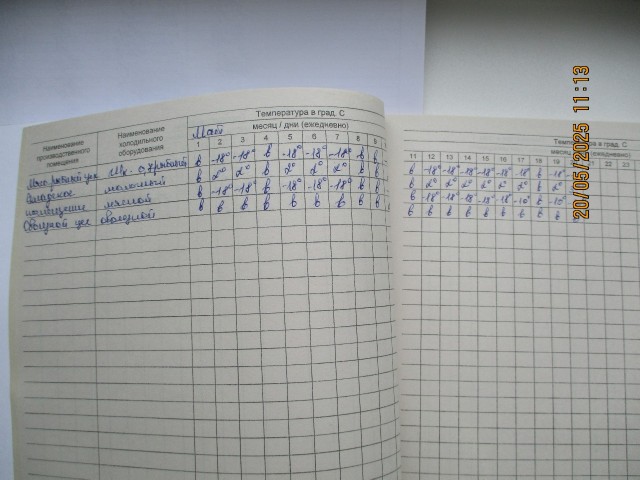 Температура в град. С
Наименование производственного помещения
Наименование холодильного оборудования
Май месяц / дни (ежедневно)
1 2 3 4 5 6 7 8 9
в -18° -18° в -18° -18° -18° в в
молочный в 2° 2° в 2° 2° 2° в в
мясной в -18° -18° в -18° -18° -18° в в
овощной в в в в в в в в в
Темп в град. С
месяц (ежедневно)
11 12 13 14 15 16 17 18 19 22 23
в -18° -18° -18° -18° -18° -18° в -18°
в 2° 2° 2° 2° 2° 2° в 2°
в -18° -18° -18° -18° -18° в
в в в в в в в в в
20/05/2025 11:13